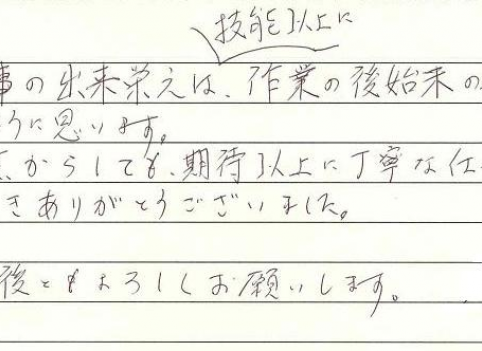 技能以上に
事の出来栄えは、作業の後始末の
うに思います。
からしても、期待以上に丁寧な仕
きありがとうございました。
後ともよろしくお願いします。